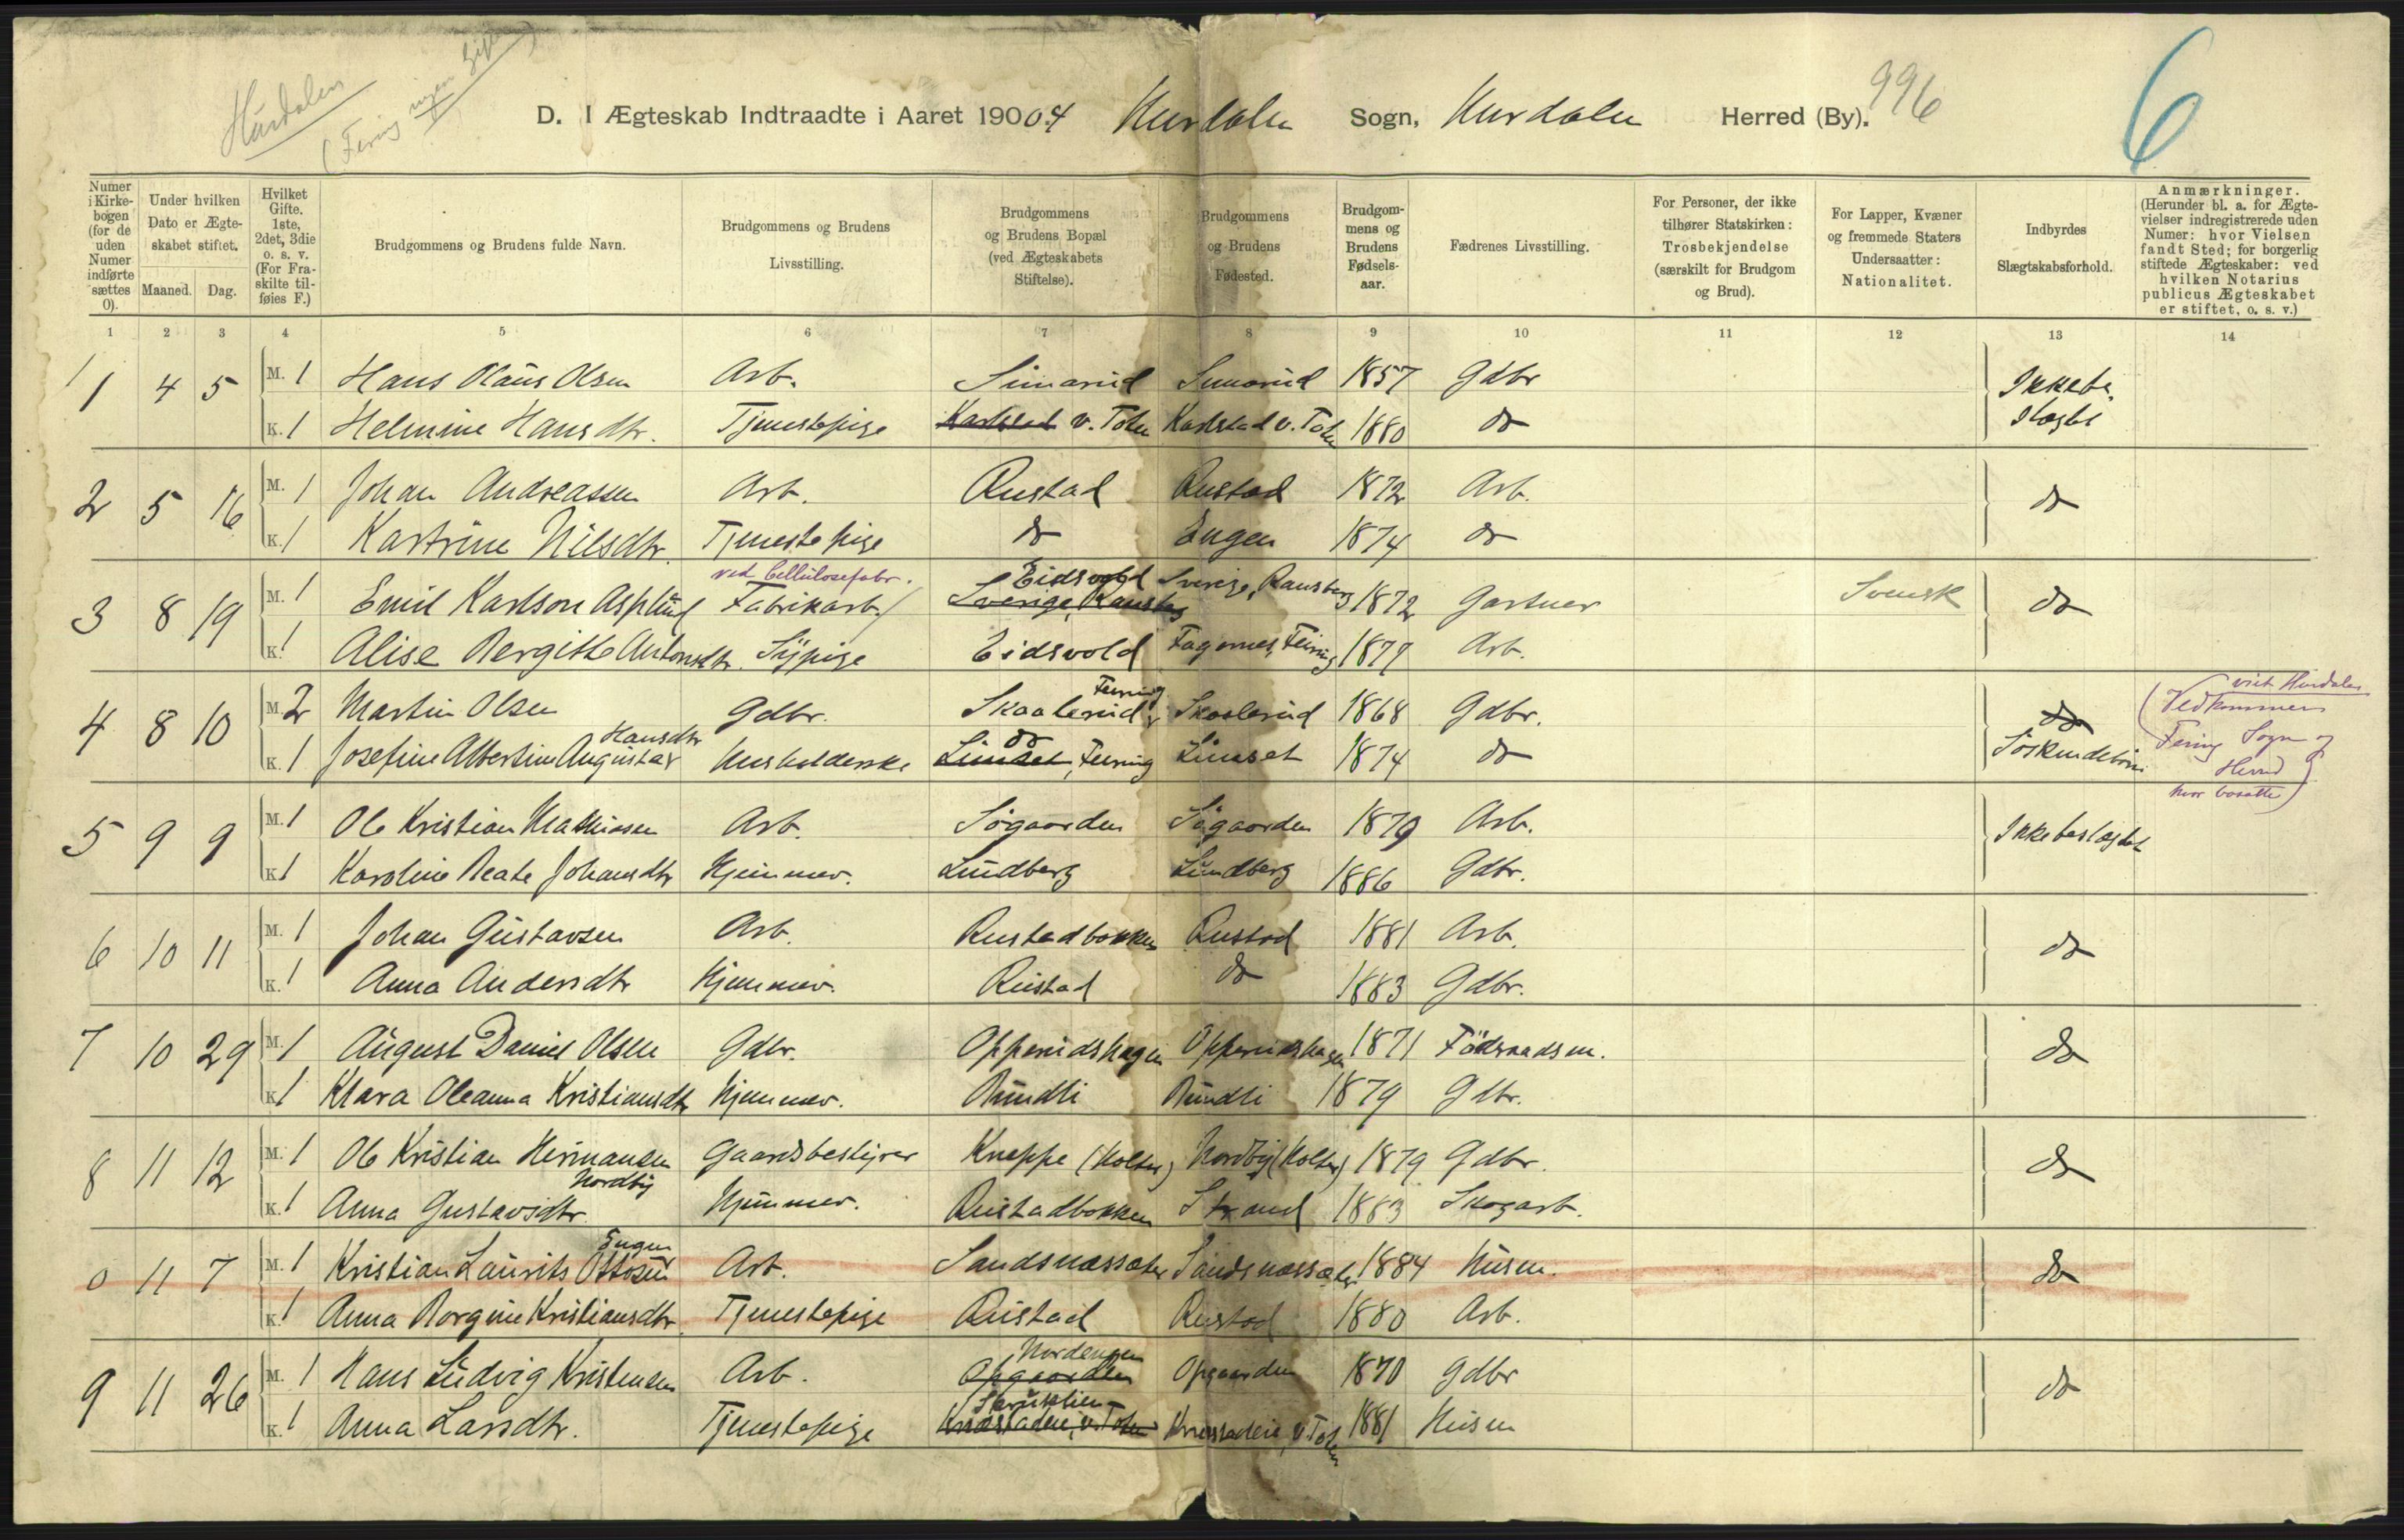 Hurdalen
(Fering ingen Gifte)
D. I Ægteskab Indtraadte i Aaret 1904 Hurdalen Sogn, Hurdalen Herred (By).
996
6
Numer i Kirkebogen (for de uden Numer indførte sættes 0).
Under hvilken Dato er Ægteskabet stiftet.
Maaned. Dag.
Hvilket Gifte. 1ste, 2det, 3die o. s. v. (For Fraskilte tilføies F.)
Brudgommens og Brudens fulde Navn.
Brudgommens og Brudens Livsstilling.
Brudgommens og Brudens Bopæl (ved Ægteskabets Stiftelse).
Brudgommens og Brudens Fødested.
Brudgommens og Brudens Fødselsaar.
Fædrenes Livsstilling.
For Personer, der ikke tilhører Statskirken: Trosbekjendelse (særskilt for Brudgom og Brud).
For Lapper, Kvæner og fremmede Staters Undersaatter: Nationalitet.
Indbyrdes Slægtskabsforhold.
Anmærkninger. (Herunder bl. a. for Ægtevielser indregistrerede uden Numer: hvor Vielsen fandt Sted; for borgerlig stiftede Ægteskaber: ved hvilken Notarius publicus Ægteskabet er stiftet, o. s. v.)
1 2 3 4 5 6 7 8 9 10 11 12 13 14
1 4 5 M. 1 Hans Olaus Olsen Arb. Simarud Simarud 1857 Gdbr Ikkebeslægtet
K. 1 Helmine Hansdtr. Tjenestepige Karlstad v. Toten Karlstad v. Toten 1880 do
2 5 16 M. 1 Johan Andreassen Arb. Rustad Rustad 1872 Arb. do
K. 1 Kartrine Nilsdtr. Tjenestepige do Engen 1874 do
ved Cellulosefabr. Eidsvold
3 8 19 M. 1 Emil Karlson Asplund Fabrikarb. Sverige, Ransberg Sverige, Ransberg 1872 Gartner Svensk do
K. 1 Alise Bergitte Antonsdtr. Sypige Eidsvold Fagernes, Feiring 1877 Arb.
4 8 10 M. 2 Martin Olsen Gdbr. Skaalerud Feiring Skaalerud 1868 Gdbr. do Søskendebørn
K. 1 Josefine Albertine Augusta Hansdtr Husholderske do Linset, Feiring Linset 1874 do
(viet Hurdalen
Vedkommer
Fering Sogn og
Herred
hvor bosatte)
5 9 9 M. 1 Ole Kristian Mathiasen Arb. Søgaarden Søgaarden 1879 Arb. Ikke beslægtet
K. 1 Karoline Beate Johansdtr Hjemmev. Lundberg Lundberg 1886 Gdbr.
6 10 11 M. 1 Johan Gustavsen Arb. Rustadbakken Rustad 1881 Arb. do
K. 1 Anna Andersdtr Hjemmev. Rustad do 1883 Gdbr.
7 10 29 M. 1 August Daniel Olsen Gdbr. Opperudshagen Opperudshagen 1871 Føderaadsm. do
K. 1 Klara Oleanna Kristiansdtr Hjemmev. Rundli Rundli 1879 Gdbr.
8 11 12 M. 1 Ole Kristian Hermansen Nordby Gaardsbestyrer Kneppe (Holter) Nordby (Holter) 1879 Gdbr. do
K. 1 Anna Gustavsdtr. Hjemmev. Rustadbakken Strand 1883 Skogarb.
0 11 7 M. 1 Kristian Laurits Ottosen Engen Arb. Sandsnæssæter Sandsnæssæter 1884 Husm. do
K. 1 Anna Borgine Kristiansdtr. Tjenestepige Rustad Rustad 1880 Arb.
9 11 26 M. 1 Hans Ludvig Kristensen Arb. Nordengen Opgaarden Opgaarden 1870 Gdbr do
K. 1 Anna Larsdtr. Tjenestepige Knæstadeie, v. Toten Knæstadeie, v. Toten 1881 Husm